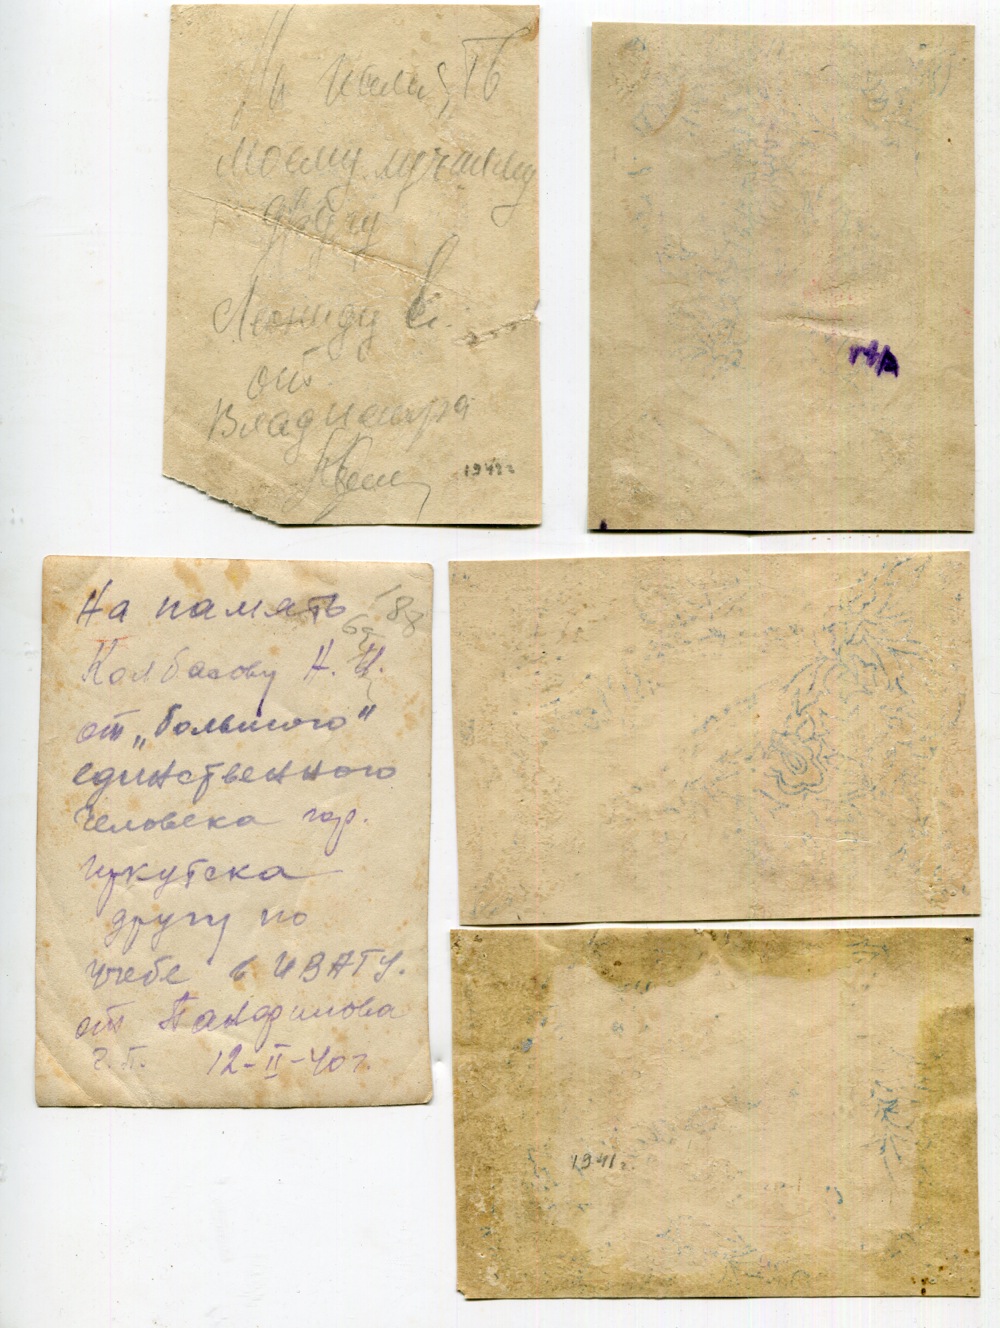 На память
моему лучшему
другу
Леониду
от
Владимира
1941 г
На память
Колбасову Н. И.
от „большого"
единственного
человека гор.
Иркутска
другу по
учебе в ИВАТУ.
от Панфилова
Г. П. 12-II-40 г.
1941 г.